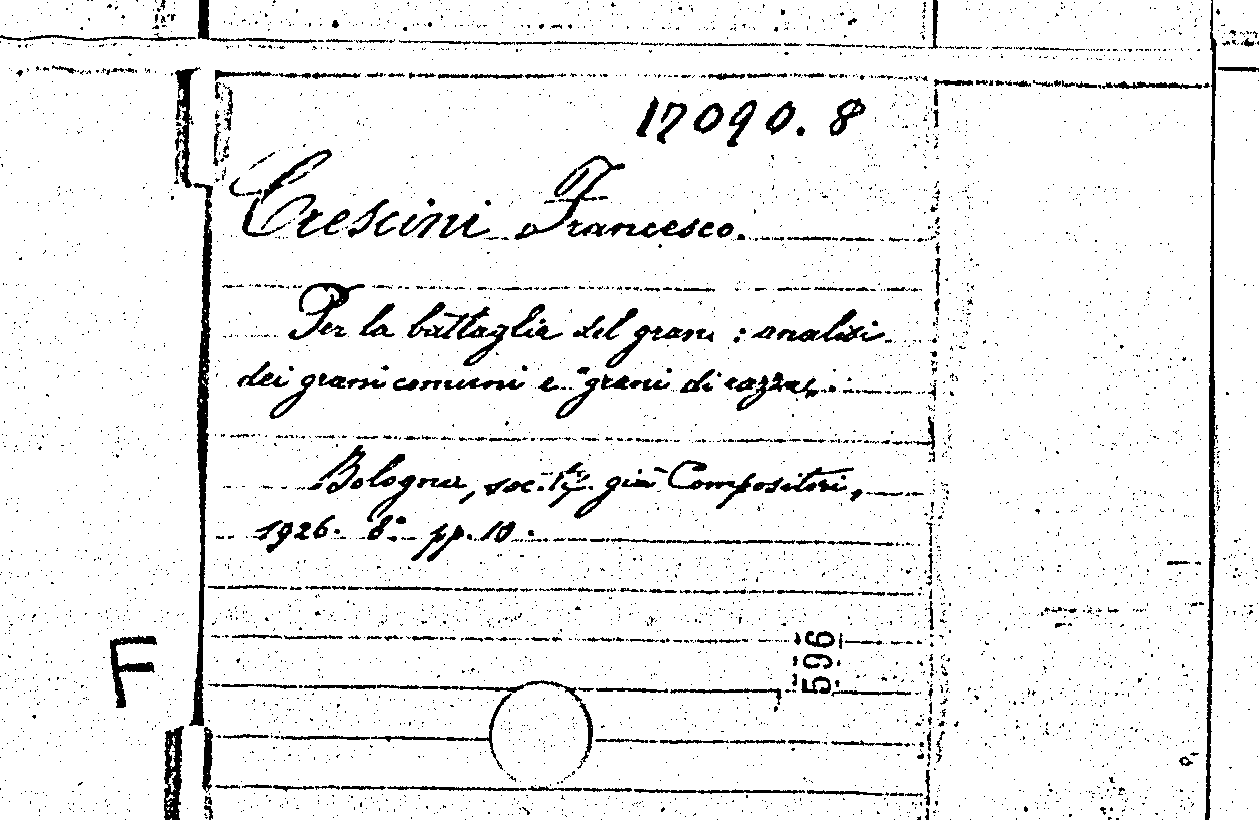 17090. 8
Crescini Francesco.
Per la battaglia del grano : analisi
dei grani comuni e "grani di razza„.
Bologna, soc. tip. già Compositori,
1926. 8° pp. 10.
F
596